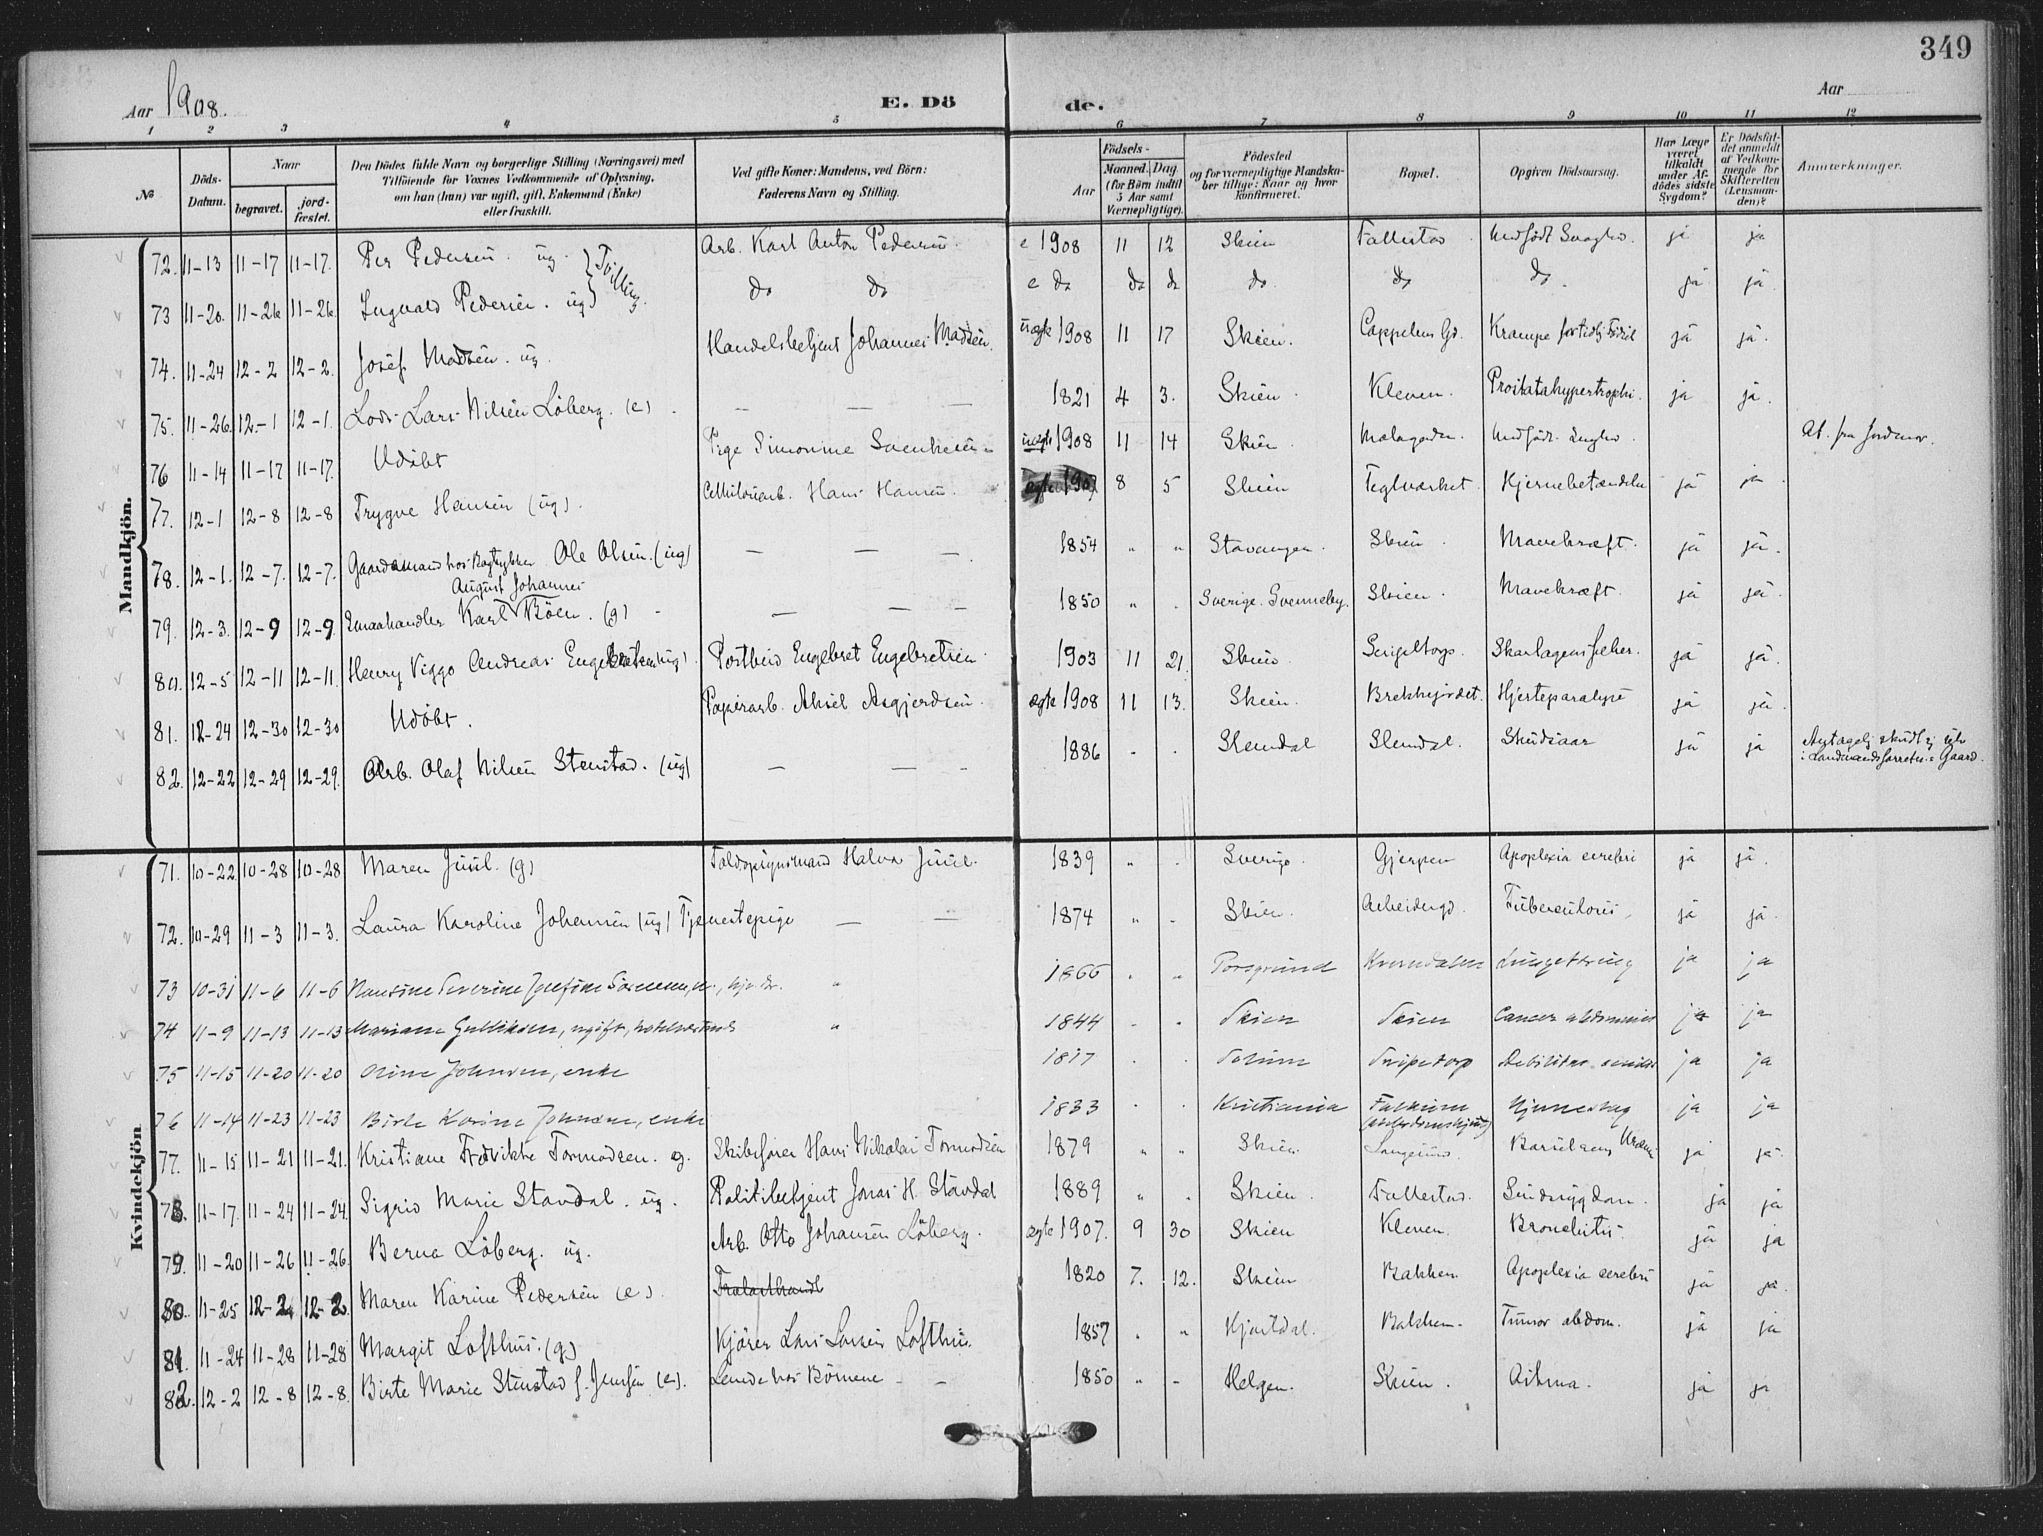 349
Aar 1908.
E. Dö de.
Aar
1 2 3 4 5 6 7 8 9 10 11 12
No
Döds-Datum.
Naar
begravet.
jordfæstet.
Den Dödes fulde Navn og borgerlige Stilling (Næringsvei) med
Tilföiende for Voxnes Vedkommende af Oplysning,
om han (hun) var ugift, gift, Enkemand (Enke)
eller fraskilt.
Ved gifte Koner: Mandens, ved Börn:
Faderens Navn og Stilling.
Födsels-
Aar
Maaned. Dag.
(for Börn indtil
5 Aar samt
Værnepligtige).
Födested
og for værnepligtige Mandskaber tillige: Naar og hvor
konfirmeret.
Bopæl.
Opgiven Dödsaarsag.
Har Læge
været
tilkaldt
under Afdödes sidste
Sygdom?
Er Dödsfaldet anmeldt
af Vedkommende for
Skifteretten
(Lensmanden)?
Anmærkninger.
Mandkjön.
72. 11-13 11-17 11-17. Per Pedersen. ug. } Tvilling. Arb. Karl Anton Pedersen. e 1908 11 12 Skien Falkestad Medfødt Svaghed. ja ja
73 11-20. 11-26 11-26. Ingvald Pedersen. ug do do e do do do do. do do. ja ja.
74. 11-24 12-2 12-2. Josef Madsen. ug. Handelsbetjent Johannes Madsen. uægte 1908 11 17 Skien. Cappelens Gd. Krampe ja ja.
75. 11-26. 12-1 12-1. Lods Lars Nilsen Løberg. (e). — — — 1821 4 3. Skien. Kleven. Prostatahypertrophi. ja ja.
76 11-14 11-17 11-17. Udøbt Pige Simonine uægte 1908 11 14 Skien. Medfødt Svaghed. At. fra Jordmor.
77. 12-1 12-8 12-8 Trygve Hansen (ug). Hans Hansen. ægte 1907 8 5 Skien Teglværket. Hjernebetændelse ja ja
78. 12-1. 12-7. 12-7. Gaardsmand hos Ole Olsen. (ug) — — — 1854 " " Stavanger. Skien. Mavekræft. ja ja.
79. 12-3. 12-9 12-9. Smaahandler Karl August Johannes Böen. (g) — — — 1850 " . Sverige. Svenneby. Skien. Mavekræft. ja ja.
80. 12-5 12-11 12-11. Henry Viggo Andreas Engebretsen (ug) Postbud Engebret Engebretsen. 1903 11 21. Skien. Snipetorp. Skarlagensfeber. ja ja.
81. 12-24 12-30 12-30 Udøbt. Papirarb. Aksel Asgjerdsen. ægte 1908 11 13. Skien. Brekkejordet. Hjerteparalyse ja ja.
82. 12-22 12-29 12-29. Arb. Olaf Nilsen Stenstad. (ug) — — — 1886 . . Slemdal Slemdal. Skudsaar ja ja Antagelig skudt sig selv i Gaard.
Kvindekjön
71. 10-22 10-28 10-28 Maren Juul. (g) Halvor Juul. 1839 " . Sverige. Gjerpen Apoplexia cerebri ja ja.
72. 10-29 11-3 11-3. Laura Karoline Johansen (ug) Tjenestepige — — 1874 " . Skien. Arbeidergd. Tuberculosis. ja ja.
73 10-31 11-6 11-6 Severine Josefine " 1866 . " Porsgrund Kverndalen Lungetæring ja ja
74 11-9 11-13 11-13 Mariane Gulliksen, ugift, " 1844 . . Skien Skien Cancer abdominis ja ja
75 11-15 11-20 11-20 Oline Johnsen, enke 1817 . . Solum Snipetorp Debilitas senilis ja ja
76 11-14 11-23 11-23 Birte Karine Johnsen, enke 1833 . . Kristiania Falkum (Alderdomshjem) Hjerneslag ja ja
77. 11-15 11-21 11-21. Kristiane Fredrikke Tormodsen. g. Skibsfører Hans Nikolai Tormodsen 1879 " " Skien. Langesund. Barselseng ja ja.
78. 11-17. 11-24 11-24. Sigrid Marie Stavdal. ug. Politibetjent Jonas H. Stavdal 1889 " . Skien. Falkestad. Sindssygdom. ja ja
79. 11-20 11-26 11-26. Berna Løberg. ug. Arb. Otto Johansen Løberg. ægte 1907. 9 30 Skien Kleven. Bronchitis. ja ja
80. 11-25 12-2 12-2. Maren Karine Pedersen (e). 1820 7. 12. Skien Bakken. Apoplexia cerebri ja ja.
81 11-24 11-28 11-28 Margit Lofthus. (g) Kjører Lars Larsen Lofthus. 1857 " " Hjartdal. Bakken. Tumor abdom. ja ja
82. 12-2 12-8 12-8. Birte Marie Stenstad f. Jensen (e). Levede hos Børnene — — 1850 " - Helgen. Skien. Astma. ja ja